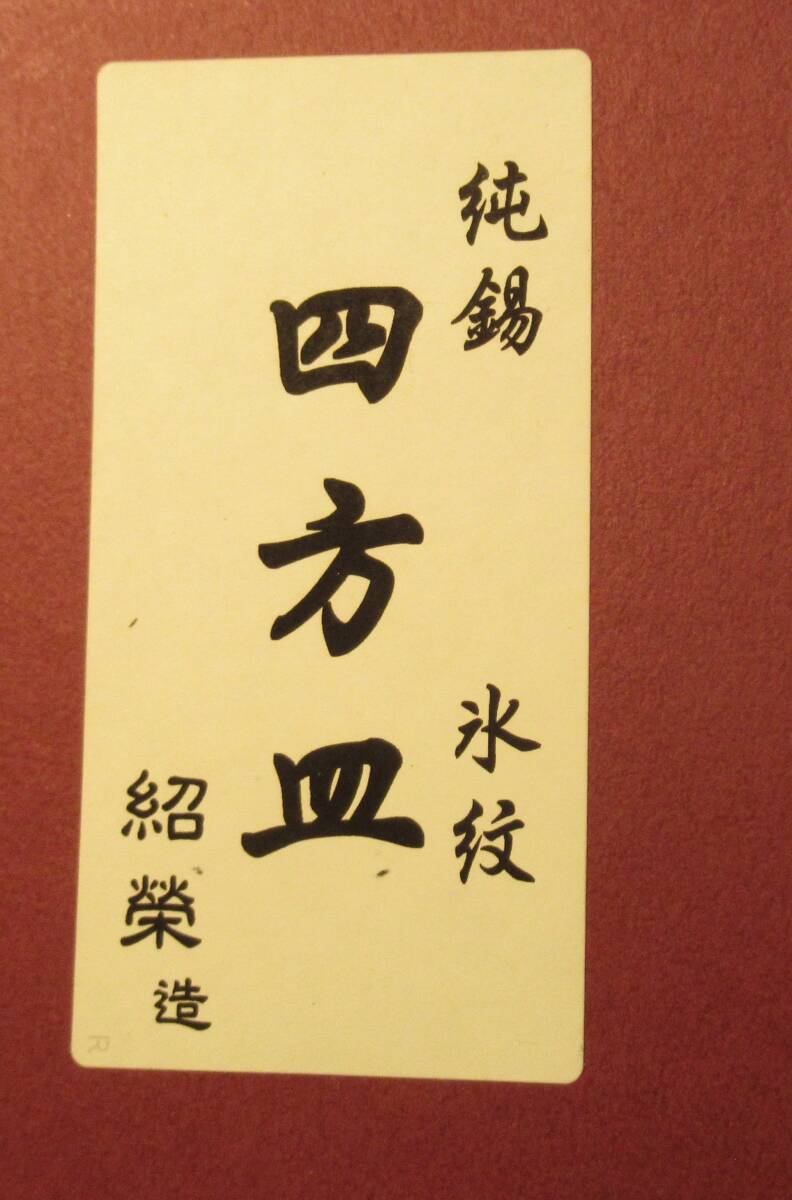 純錫 氷紋
四方皿
紹榮造